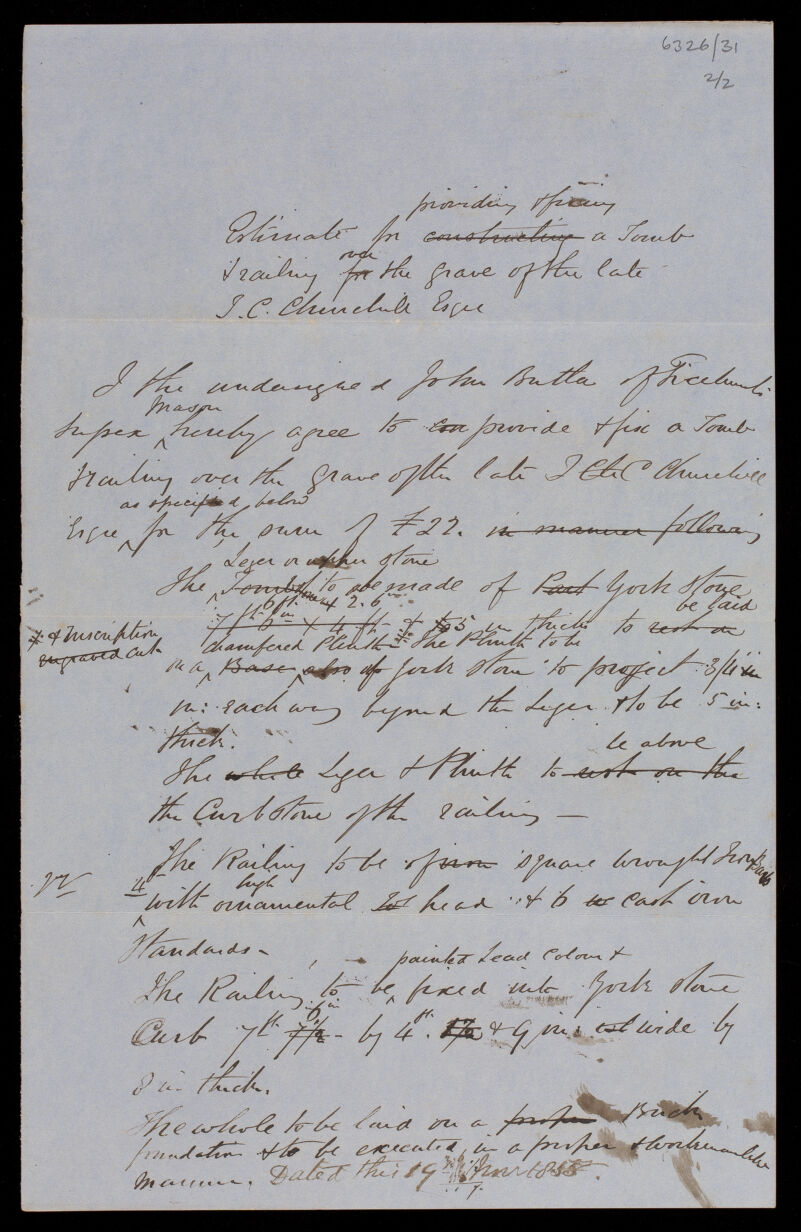 6326/31
2/2
providing & fixing
Estimate for constructing a Tomb
& railing for over the grave of the late
J. C. Churchill Esqre
I the undersigned John Butler of Ticehurst
Mason
Sussex hereby agree to provide & fix a Tomb
& railing over the grave of the late J C Churchill
as specified below
Esqre for the sum of £22. in manner following
Leger or upper stone
The Tomb to be made of York Stone
2.6
5 in thick to be laid
& Inscription
engraved cut
chamfered Plinth The Plinth to be
on a Base also of York Stone to project 3/4
in: each way beyond the Leger & to be 5 in:
thick.
be above
The whole Leger & Plinth to rest on the
the Curb stone of the railing —
The Railing to be of iron square wrought Iron Bars
4 ft high
with ornamental head & 6 cast iron
Standards —
painted Lead colour &
The Railing to be fixed into York stone
6 in
Curb 7 ft by 4 ft & 9 in: wide by
8 in thick.
The whole to be laid on a proper Brick
foundation & to be executed in a proper & workmanlike
manner. Dated this 19th